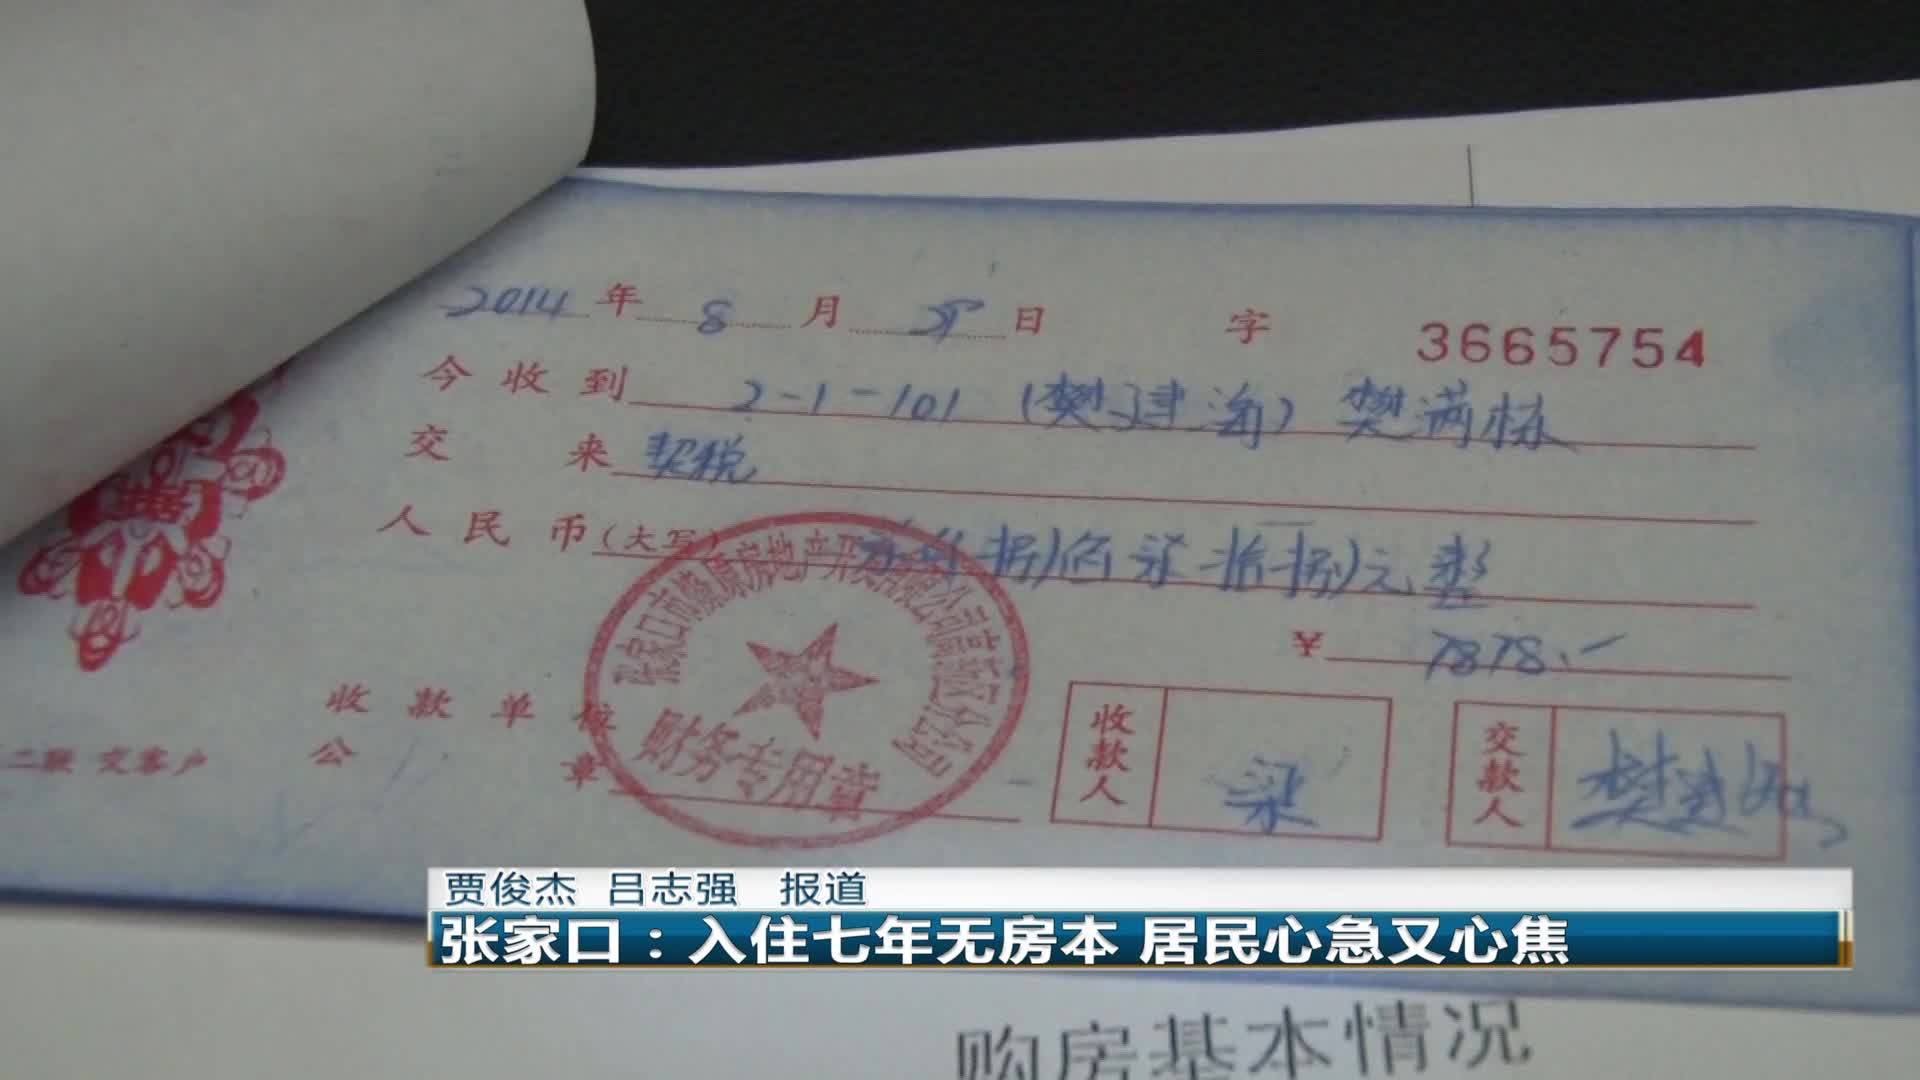 2014 年 8 月 29 日 字 3665754
今收到 2-1-101 (樊建海) 樊满栋
交 来 契税
人民币(大写) 柒仟捌佰柒拾捌元整
¥ 7878.-
张家口市燎原房地产开发有限公司蔚县分公司
财务专用章
收款单位
公 章
二联 交客户
收款人 梁
交款人
贾俊杰 吕志强 报道
张家口：入住七年无房本 居民心急又心焦
购房基本情况